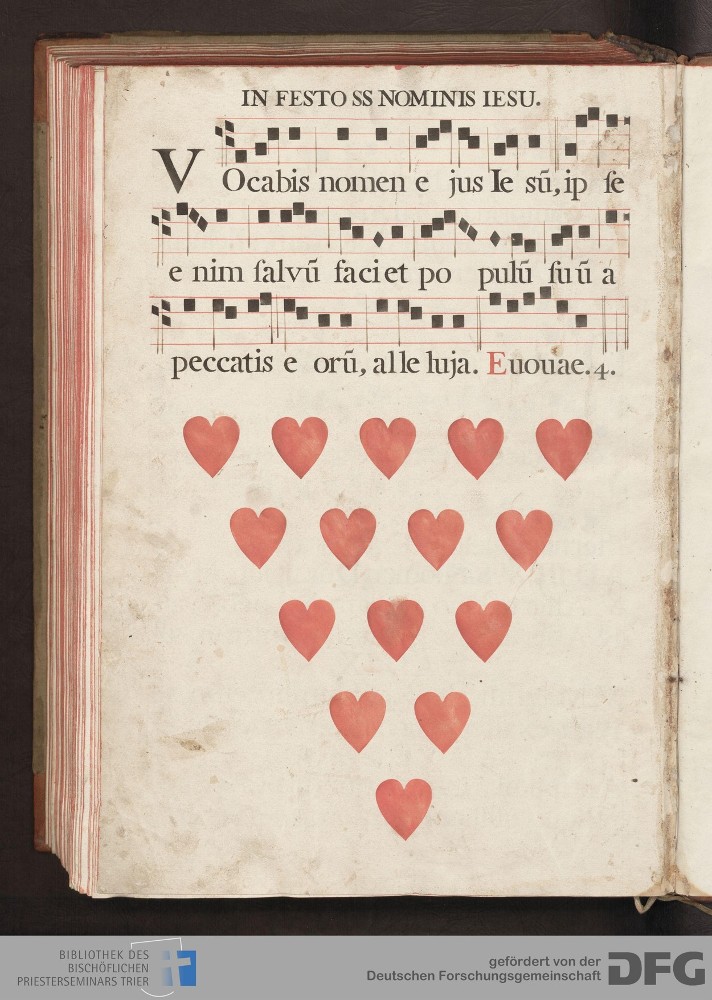 IN FESTO SS NOMINIS IESU.
VOcabis nomen e jus Ie sū, ip ſe
e nim ſalvū faci et po pulū ſu ū a
peccatis e orū, al le luja. Euouae. 4.
BIBLIOTHEK DES
BISCHÖFLICHEN
PRIESTERSEMINARS TRIER
gefördert von der
Deutschen Forschungsgemeinschaft
DFG